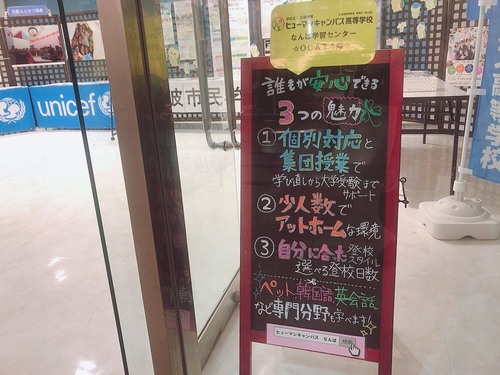 ヒューマンキャンパス高等学校
なんば学習センター
誰もが安心できる
3つの魅力
①個別対応と
集団授業で
学び直しから大学受験まで
サポート
②少人数で
アットホームな環境
③自分に合た登校
スタイル
選べる登校日数
ペット 韓国語 英会話
など専門分野も学べます!
ヒューマンキャンパス なんば 検索
unicef
波市民学